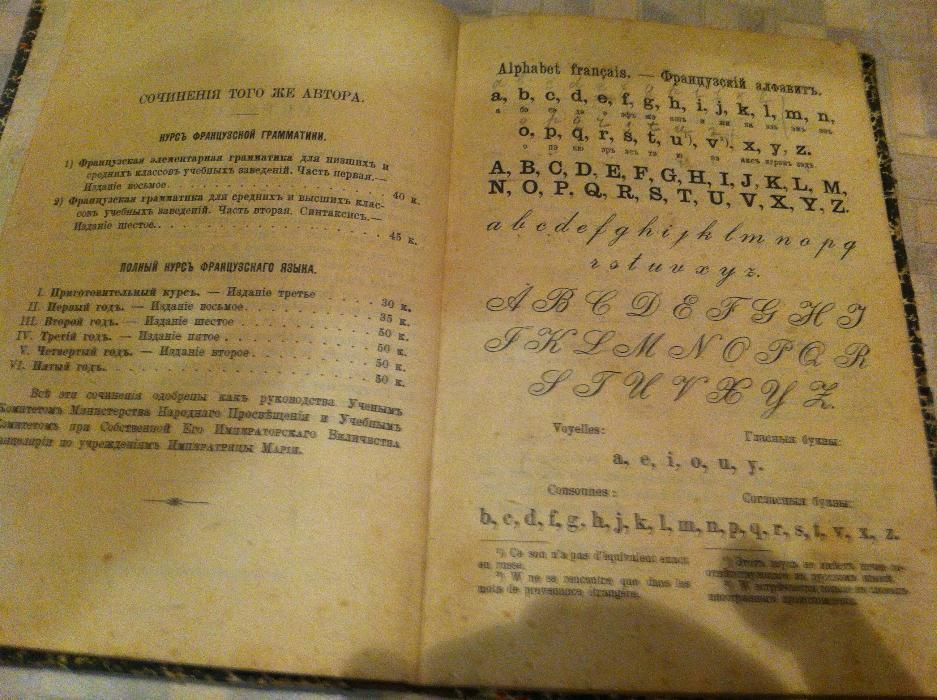 СОЧИНЕНІЯ ТОГО ЖЕ АВТОРА.
КУРСЪ ФРАНЦУЗСКОЙ ГРАММАТИКИ.
1) Французская элементарная грамматика для низшихъ и
среднихъ классовъ учебныхъ заведеній. Часть первая.—
Изданіе восьмое . . . . . . . . . . 40 к.
2) Французская грамматика для среднихъ и высшихъ клас-
совъ учебныхъ заведеній. Часть вторая. Синтаксисъ.—
Изданіе шестое . . . . . . . . . . 45 к.
ПОЛНЫЙ КУРСЪ ФРАНЦУЗСКАГО ЯЗЫКА.
I. Приготовительный курсъ. — Изданіе третье . . . . . 30 к.
II. Первый годъ. — Изданіе восьмое . . . . . . 35 к.
III. Второй годъ. — Изданіе шестое . . . . . . 50 к.
IV. Третій годъ. — Изданіе пятое . . . . . . 50 к.
V. Четвертый годъ. — Изданіе второе . . . . . . 50 к.
VI. Пятый годъ. . . . . . . . . . 50 к.
Всѣ эти сочиненія одобрены какъ руководства Ученымъ
Комитетомъ Министерства Народнаго Просвѣщенія и Учебнымъ
Комитетомъ при Собственной Его Императорскаго Величества
Канцеляріи по учрежденіямъ Императрицы Маріи.
Alphabet français. — Французскій алфавитъ.
a, b, c, d, e, f, g, h, i, j, k, l, m, n,
o, p, q, r, s, t, u¹), v²), x, y, z.
A, B, C, D, E, F, G, H, I, J, K, L, M,
N, O, P, Q, R, S, T, U, V, X, Y, Z.
a b c d e f g h i j k l m n o p q
r s t u v x y z.
A B C D E F G H I
J K L M N O P Q R
S T U V X Y Z.
Voyelles: Гласныя буквы:
a, e, i, o, u, y.
Consonnes: Согласныя буквы:
b, c, d, f, g, h, j, k, l, m, n, p, q, r, s, t, v, x, z.
¹) Ce son n'a pas d'équivalent exact
en russe.
²) W ne se rencontre que dans les
mots de provenance étrangère.
¹) Этотъ звукъ не имѣетъ
въ русскомъ языкѣ.
²) W встрѣчается только въ словахъ
иностраннаго происхожденія.